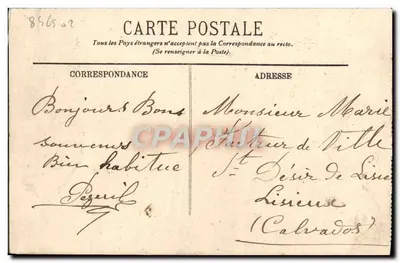 8565 02
CARTE POSTALE
Tous les Pays étrangers n'acceptent pas la Correspondance au recto.
(Se renseigner à la Poste).
CORRESPONDANCE
ADRESSE
Bonjours Bons
souvenirs
Bien habitue
Monsieur Marie
Facteur de Ville
St Désir de Lisieux
Lisieux
(Calvados)
CPAPHIL